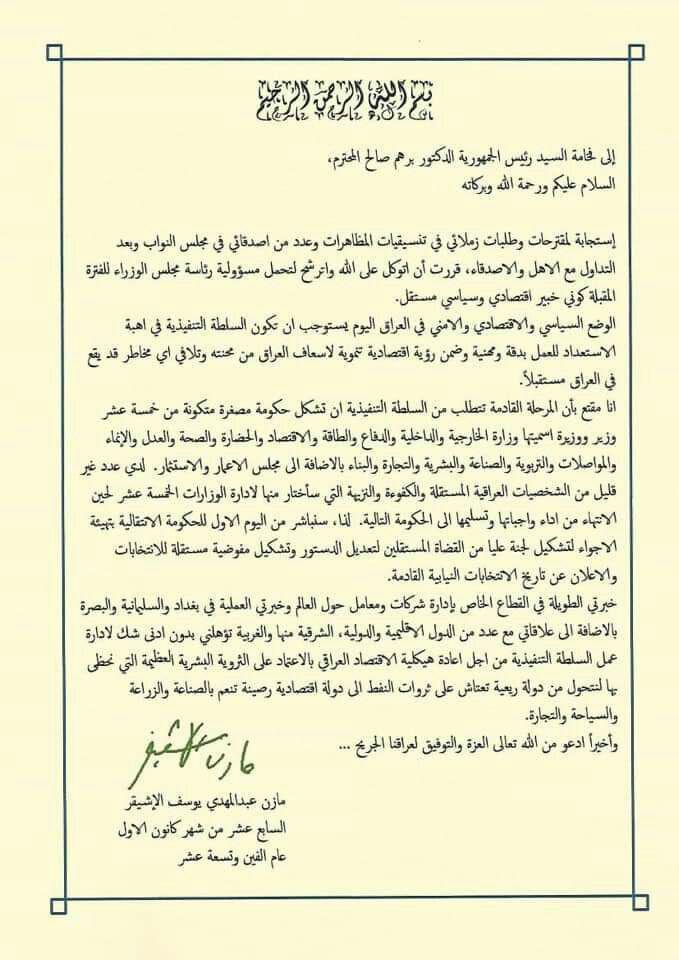 بسم الله الرحمن الرحيم
إلى فخامة السيد رئيس الجمهورية الدكتور برهم صالح المحترم،
السلام عليكم ورحمة الله وبركاته
إستجابة لمقترحات وطلبات زملائي في تنسيقيات المظاهرات وعدد من اصدقائي في مجلس النواب وبعد
التداول مع الاهل والاصدقاء، قررت أن اتوكل على الله واترشح لتحمل مسؤولية رئاسة مجلس الوزراء للفترة
المقبلة كوني خبير اقتصادي وسياسي مستقل.
الوضع السياسي والاقتصادي والامني في العراق اليوم يستوجب ان تكون السلطة التنفيذية في اهبة
الاستعداد للعمل بدقة ومهنية وضمن رؤية اقتصادية تنموية لاسعاف العراق من محنته وتلافي اي مخاطر قد يقع
في العراق مستقبلاً.
انا مقتنع بأن المرحلة القادمة تتطلب من السلطة التنفيذية ان تشكل حكومة مصغرة متكونة من خمسة عشر
وزير ووزيرة اسميتها وزارة الخارجية والداخلية والدفاع والطاقة والاقتصاد والحضارة والصحة والعدل والإنماء
والمواصلات والتربوية والصناعة والبشرية والتجارة والبناء بالاضافة الى مجلس الاعمار والاستثمار. لدي عدد غير
قليل من الشخصيات العراقية المستقلة والكفوءة والنزيهة التي سأختار منها لادارة الوزارات الخمسة عشر لحين
الانتهاء من اداء واجباتها وتسليمها الى الحكومة التالية. لذا، سنباشر من اليوم الاول للحكومة الانتقالية بتهيئة
الاجواء لتشكيل لجنة عليا من القضاة المستقلين لتعديل الدستور وتشكيل مفوضية مستقلة للانتخابات
والاعلان عن تاريخ الانتخابات النيابية القادمة.
خبرتي الطويلة في القطاع الخاص بإدارة شركات ومعامل حول العالم وخبرتي العملية في بغداد والسليمانية والبصرة
بالاضافة الى علاقاتي مع عدد من الدول الاقليمية والدولية، الشرقية منها والغربية تؤهلني بدون ادنى شك لادارة
عمل السلطة التنفيذية من اجل اعادة هيكلية الاقتصاد العراقي بالاعتماد على الثروية البشرية العظيمة التي نحظى
بها لنتحول من دولة ريعية تعتاش على ثروات النفط الى دولة اقتصادية رصينة تنعم بالصناعة والزراعة
والسياحة والتجارة.
وأخيراً ادعو من الله تعالى العزة والتوفيق لعراقنا الجريح ...
مازن الاشيقر
مازن عبدالمهدي يوسف الإشيقر
السابع عشر من شهر كانون الاول
عام الفين وتسعة عشر